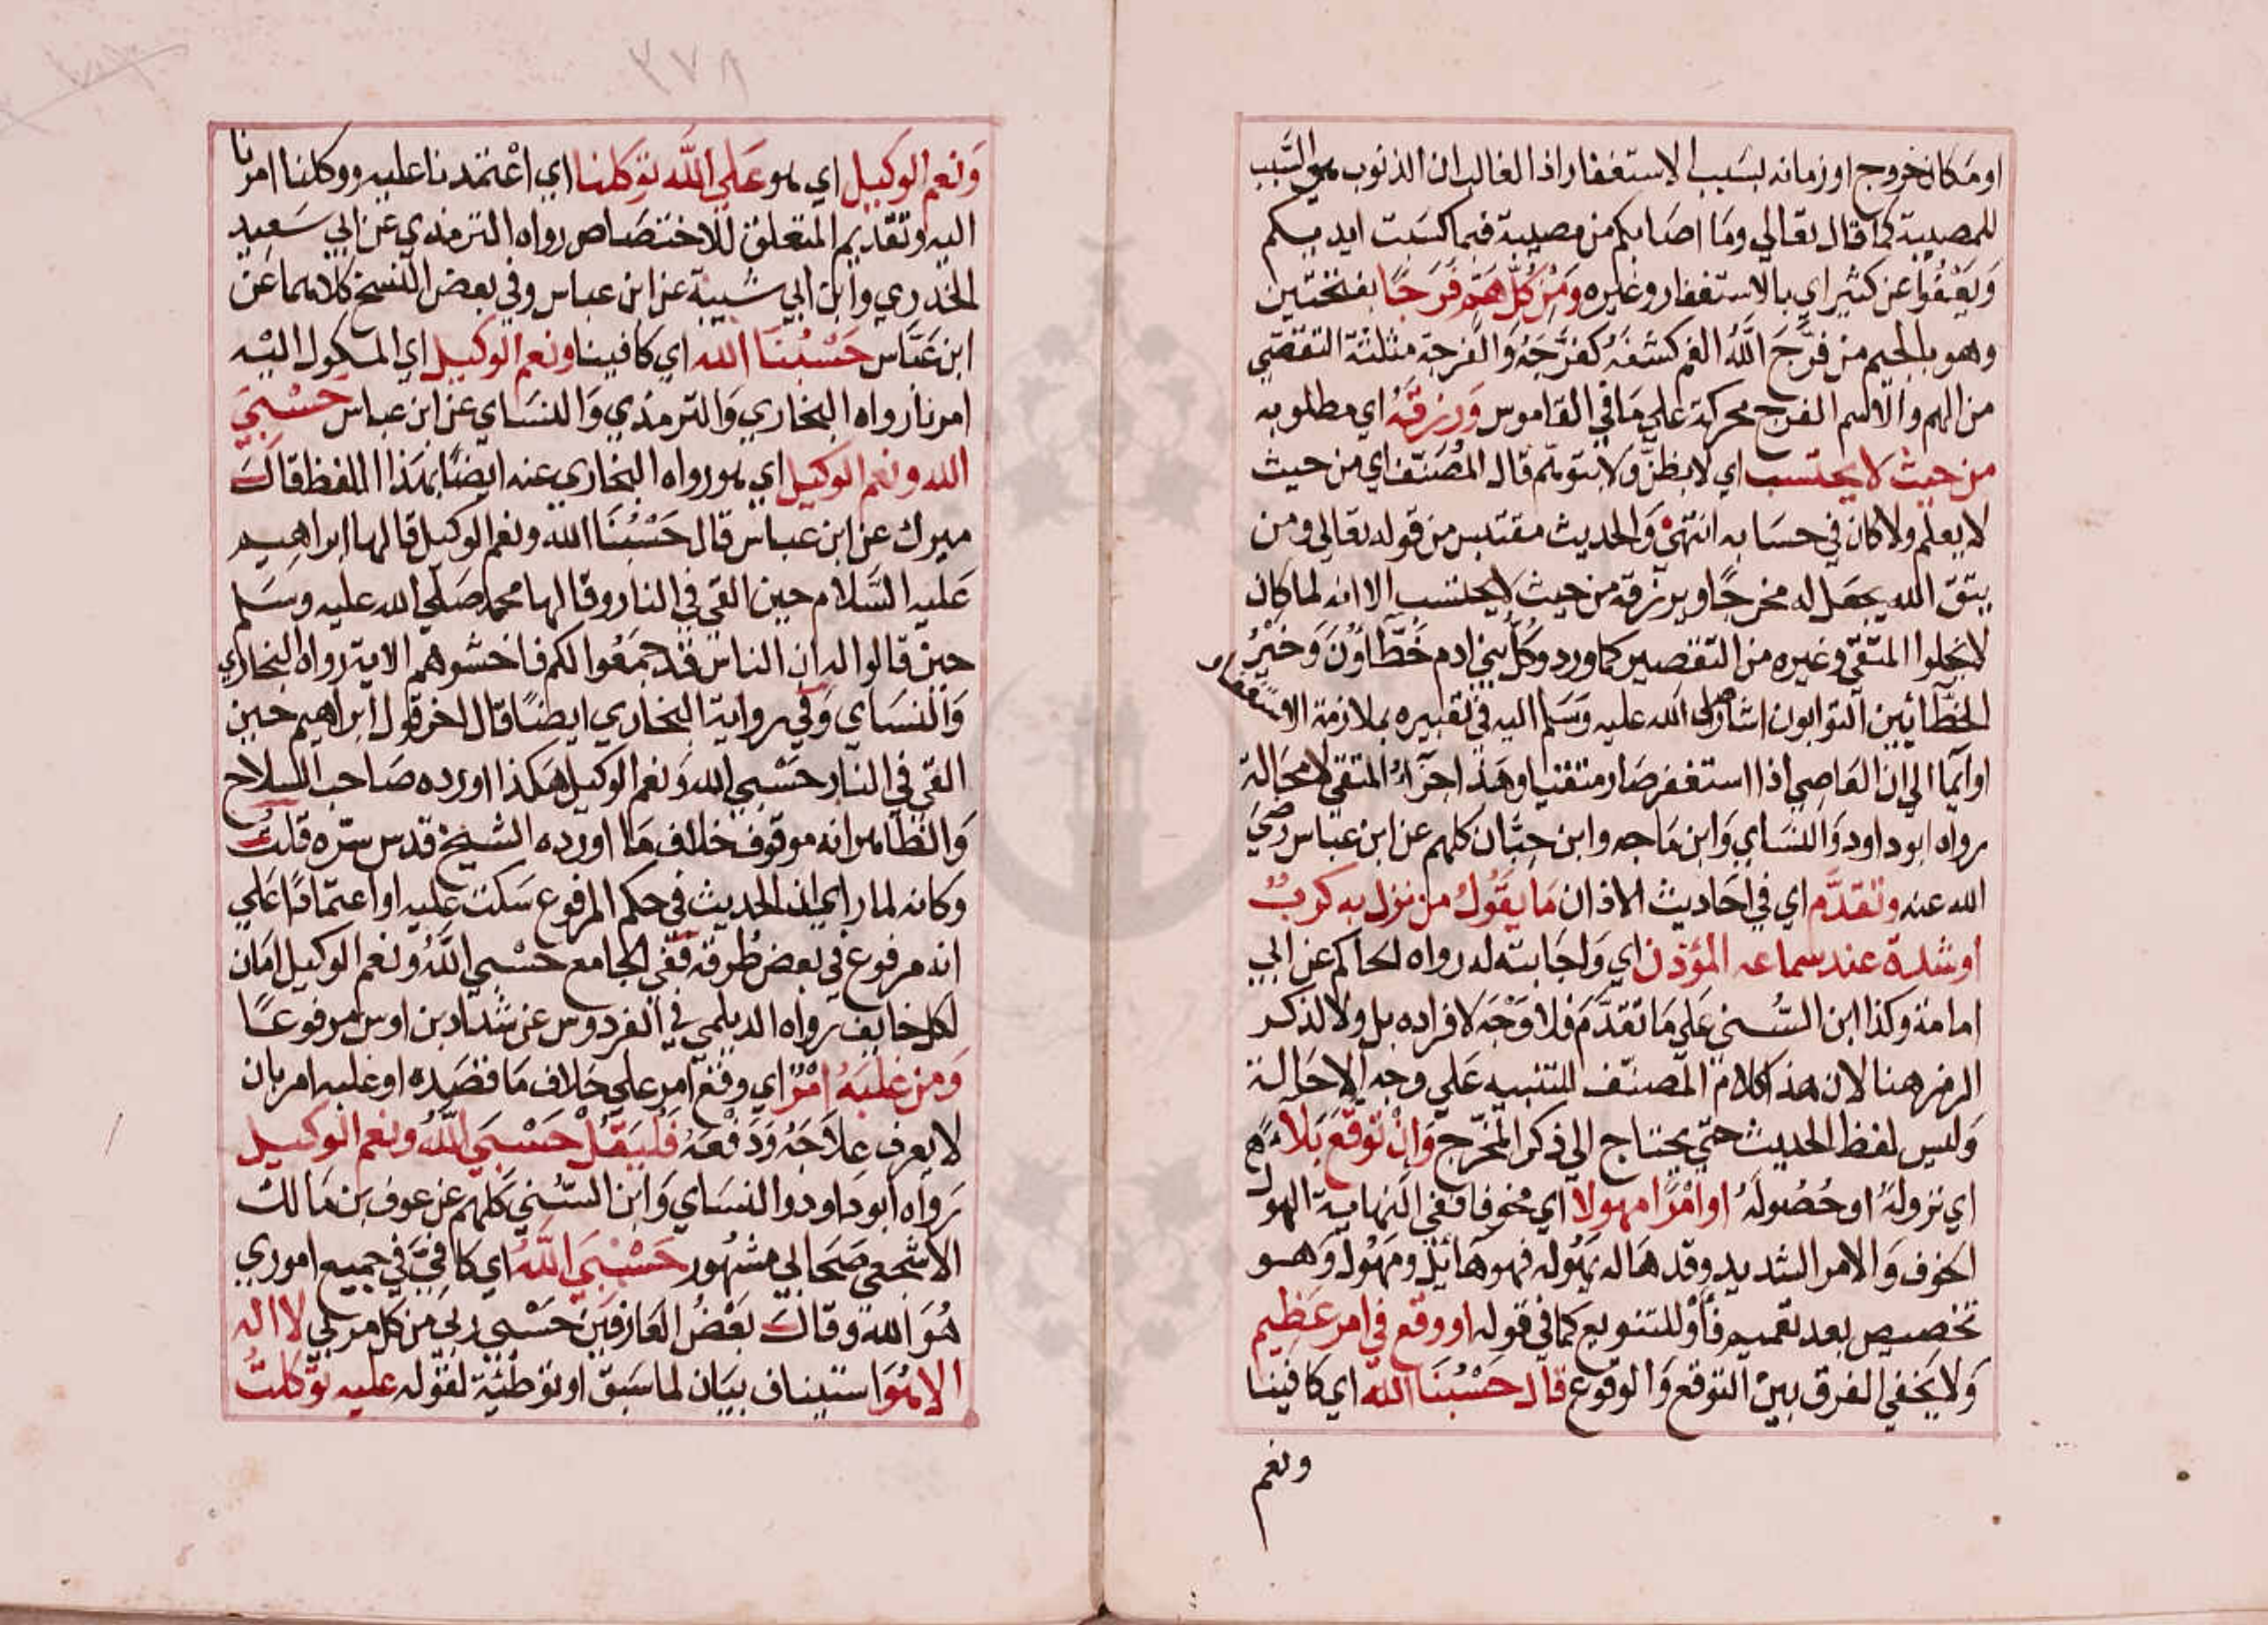 او مكان خروج او زمانه بسبب الاستغفار اذ الغالب ان الذنوب هي السبب
للمصيبة كما قال تعالي وما اصابكم من مصيبة فبما كسبت ايديكم
ويعفوا عن كثير اي بالاستغفار وغيره ومن كل هم فرجا بفتحتين
وهو بالجيم من فرج الله الغم كشفه كفرجه والفرجة مثلثة التفصي
من الهم والاسم الفرج محركة علي ما في القاموس ورزقه اي مطلوبه
من حيث لا يحتسب اي لا يظن ولا يتوهم قال المصنف اي من حيث
لا يعلم ولا كان في حسابه انتهي والحديث مقتبس من قوله تعالي ومن
يتق الله يجعل له مخرجا ويرزقه من حيث لا يحتسب الا انه لما كان
لا يخلوا المتقي وغيره من التقصير كما ورد وكل بني ادم خطاؤن وخير
الخطائين التوابون اشار صلي الله عليه وسلم اليه في تعبيره بملازمة الاستغفار
او ايما الي ان العاصي اذا استغفر صار متقيا وهذا جزاء المتقي لا محالة
رواه ابو داود والنساي وابن ماجه وابن حبان كلهم عن ابن عباس رضي
الله عنه وتقدم اي في احاديث الاذان ما يقول من نزل به كرب
او شدة عند سماعه المؤذن اي واجابته له رواه الحاكم عن ابي
امامة وكذا ابن السني علي ما تقدم فلا وجه لافراده بل ولا لذكر
الرمز هنا لان هذا كلام المصنف للتنبيه علي وجه الاحالة
وليس لفظ الحديث حتي يحتاج الي ذكر المخرج وان توقع بلاء
اي نزوله او حصوله او امرا مهولا اي مخوفا ففي النهاية الهول
الخوف والامر الشديد وقد هاله يهوله فهو هائل ومهول وهو
تخصيص بعد تعميم فاو للتنويع كما في قوله او وقع في امر عظيم
ولا يخفي الفرق بين التوقع والوقوع قال حسبنا الله اي كافينا
ونعم
٣٧٨
ونعم الوكيل اي هو علي الله توكلنا اي اعتمدنا عليه ووكلنا امرنا
اليه وتقديم المتعلق للاختصاص رواه الترمذي عن ابي سعيد
الخدري وابن ابي شيبة عن ابن عباس وفي بعض النسخ كلاهما عن
ابن عباس حسبنا الله اي كافينا ونعم الوكيل اي الموكول اليه
امرنا رواه البخاري والترمذي والنساي عن ابن عباس حسبي
الله ونعم الوكيل اي هو رواه البخاري عنه ايضا بهذا اللفظ قال
ميرك عن ابن عباس قال حسبنا الله ونعم الوكيل قالها ابراهيم
عليه السلام حين القي في النار وقالها محمد صلي الله عليه وسلم
حين قالوا له ان الناس قد جمعوا لكم فاخشوهم الاية رواه البخاري
والنساي وفي رواية البخاري ايضا قال اخر قول ابراهيم حين
القي في النار حسبي الله ونعم الوكيل هكذا اورده صاحب السلاح
والظاهر انه موقوف خلاف ما اورده الشيخ قدس سره قلت
وكانه لما راي ان الحديث في حكم المرفوع سكت عليه او اعتمادا علي
انه مرفوع في بعض طرقه ففي الجامع حسبي الله ونعم الوكيل امان
لكل خايف رواه الديلمي في الفردوس عن شداد بن اوس مرفوعا
ومن غلبه امر اي وقع امر علي خلاف ما قصده او غلبه امر بان
لا يعرف علاجه ودفعه فليقل حسبي الله ونعم الوكيل
رواه ابو داود والنساي وابن السني كلهم عن عوف بن مالك
الاشجعي صحابي مشهور حسبي الله اي كافي في جميع اموري
هو الله وقال بعض العارفين حسبي ربي من كل مربي لا اله
الا هو استيناف بيان لما سبق او توطئة لقوله عليه توكلت